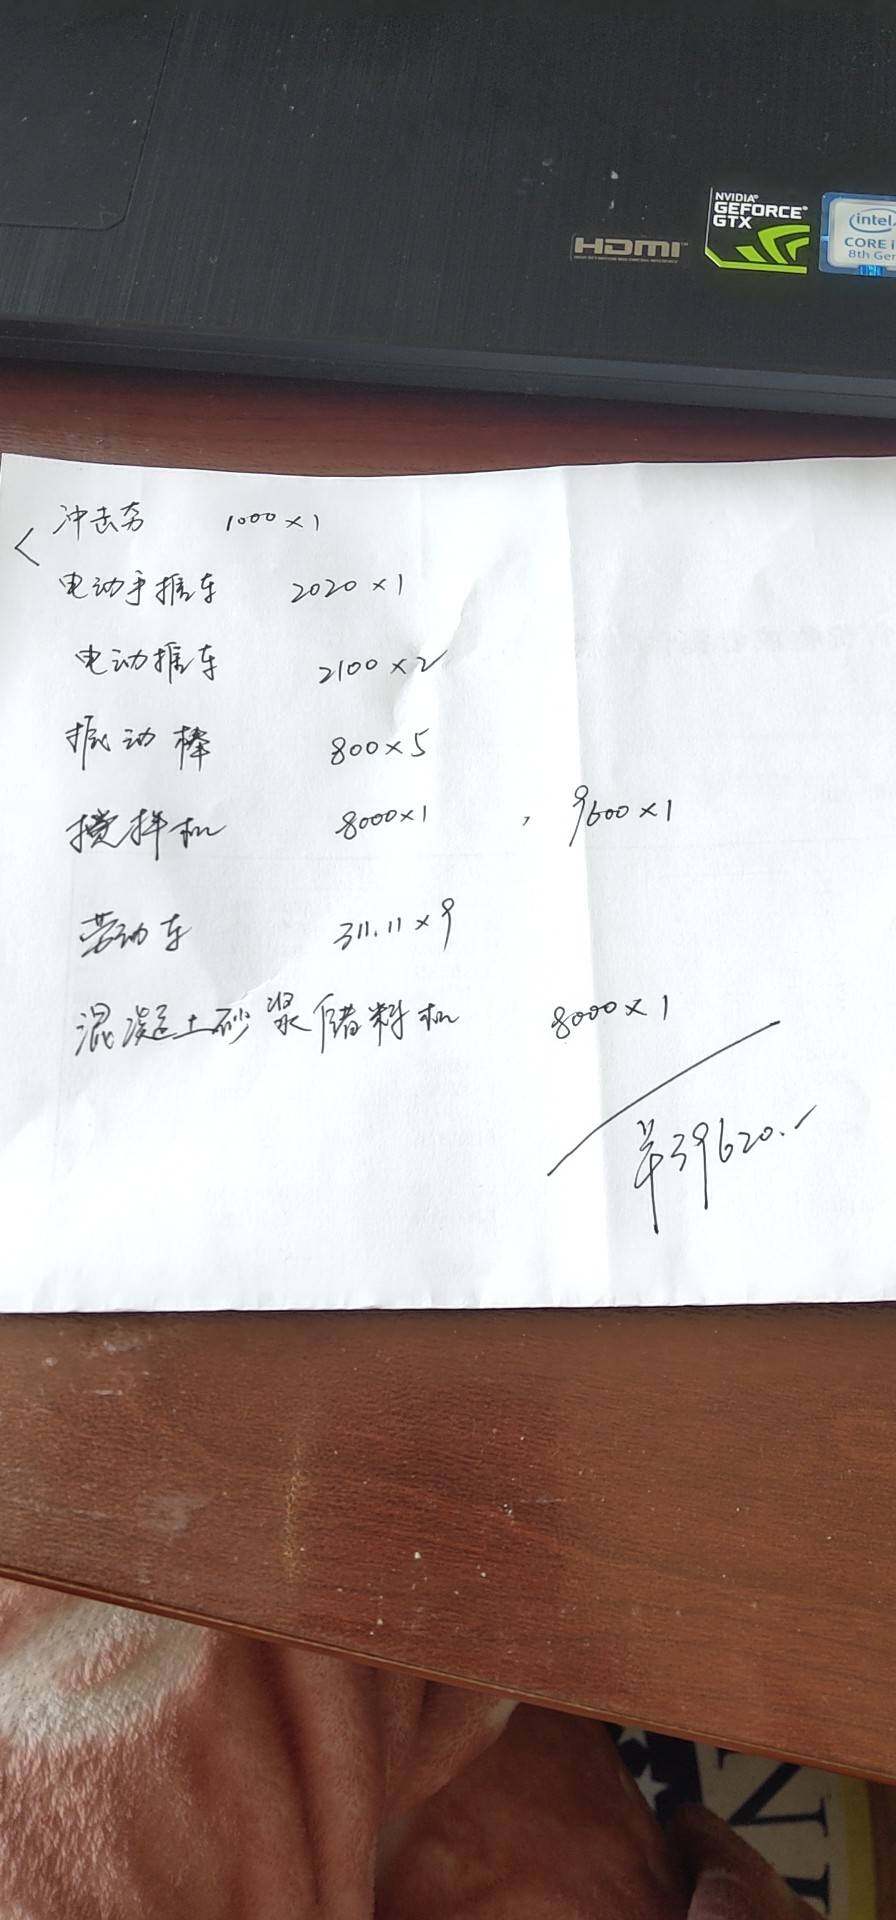 NVIDIA
GEFORCE
GTX
HDMI
intel
CORE i
8th Gen
冲击夯 1000×1
电动手推车 2020×1
电动推车 2100×2
振动棒 800×5
搅拌机 8000×1 , 9600×1
劳动车 311.11×9
混凝土砂浆储料机 8000×1
¥39620.-